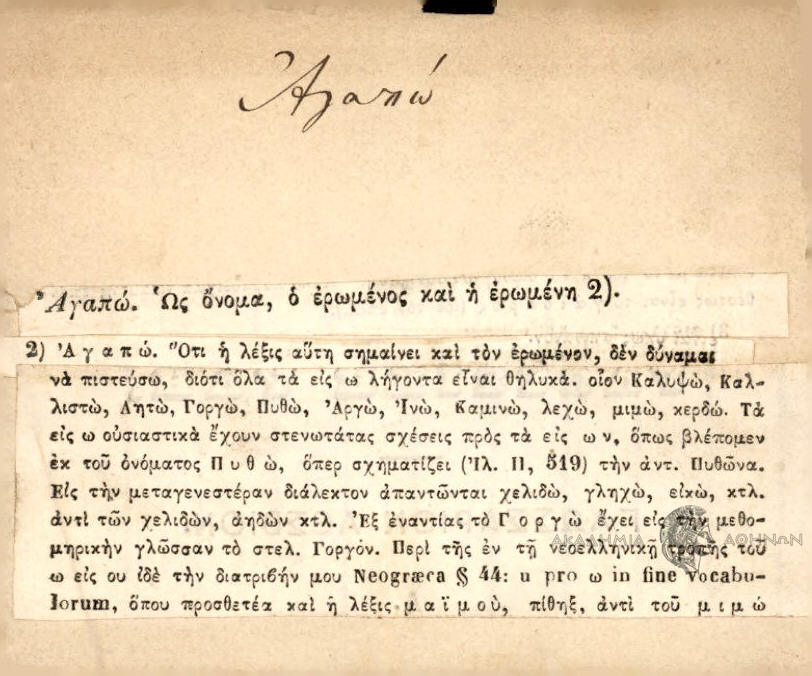 Ἀγαπώ
Ἀγαπώ. Ὡς ὄνομα, ὁ ἐρωμένος καὶ ἡ ἐρωμένη 2).
2) Ἀγαπώ. Ὅτι ἡ λέξις αὕτη σημαίνει καὶ τὸν ἐρωμένον, δὲν δύναμαι
νὰ πιστεύσω, διότι ὅλα τὰ εἰς ω λήγοντα εἶναι θηλυκά. οἷον Καλυψὼ, Καλ-
λιστὼ, Λητὼ, Γοργὼ, Πυθὼ, Ἀργὼ, Ἰνὼ, Καμινὼ, λεχὼ, μιμὼ, κερδώ. Τὰ
εἰς ω οὐσιαστικὰ ἔχουν στενωτάτας σχέσεις πρὸς τὰ εἰς ων, ὅπως βλέπομεν
ἐκ τοῦ ὀνόματος Πυθὼ, ὅπερ σχηματίζει (Ἰλ. ΙΙ, 519) τὴν ἀντ. Πυθῶνα.
Εἰς τὴν μεταγενεστέραν διάλεκτον ἀπαντῶνται χελιδὼ, γληχὼ, εἰκὼ, κτλ.
ἀντὶ τῶν χελιδὼν, ἀηδὼν κτλ. Ἐξ ἐναντίας τὸ Γοργὼ ἔχει εἰς τὴν μεθο-
μηρικὴν γλῶσσαν τὸ στελ. Γοργόν. Περὶ τῆς ἐν τῇ νεοελληνικῇ τροπῆς τοῦ
ω εἰς ου ἰδὲ τὴν διατριβήν μου Neogræca § 44: u pro ω in fine vocabu-
lorum, ὅπου προσθετέα καὶ ἡ λέξις μαϊμοὺ, πίθηξ, ἀντὶ τοῦ μιμώ
ΑΚΑΔΗΜΙΑ ΑΘΗΝΩΝ